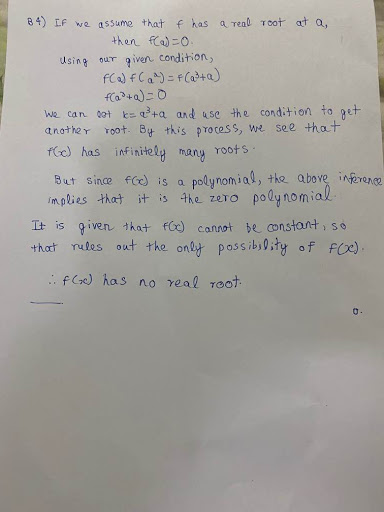 B4) IF we assume that f has a real root at a,
then f(a)=0.
Using our given condition,
f(a) f(a²) = f(a³+a)
f(a³+a) = 0
We can set k= a³+a and use the condition to get
another root. By this process, we see that
f(x) has infinitely many roots.
But since f(x) is a polynomial, the above inference
implies that it is the zero polynomial.
It is given that f(x) cannot be constant, so
that rules out the only possibility of f(x).
∴ f(x) has no real root.
0.